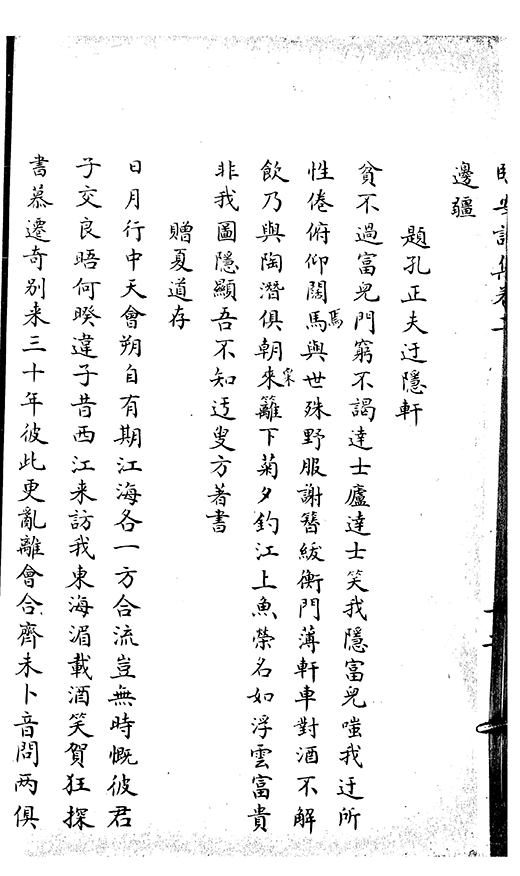 邊疆
題孔正夫迂隱軒
貧不過富兒門窮不謁達士廬達士笑我隱富兒嗤我迂所
性倦俯仰闊馬焉與世殊野服謝簪紱衡門薄軒車對酒不解
飲乃與陶潛俱朝來采籬下菊夕釣江上魚榮名如浮雲富貴
非我圖隱顯吾不知迂叟方著書
贈夏道存
日月行中天會朔自有期江海各一方合流豈無時慨彼君
子交良晤何暌違子昔西江来訪我東海湄載酒笑賀狂探
書慕遷奇別来三十年彼此更亂離會合齊未卜音問两俱